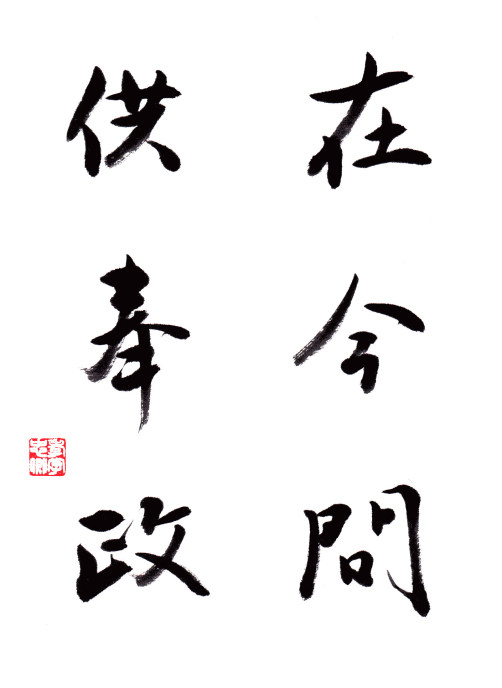 在今問
供奉政